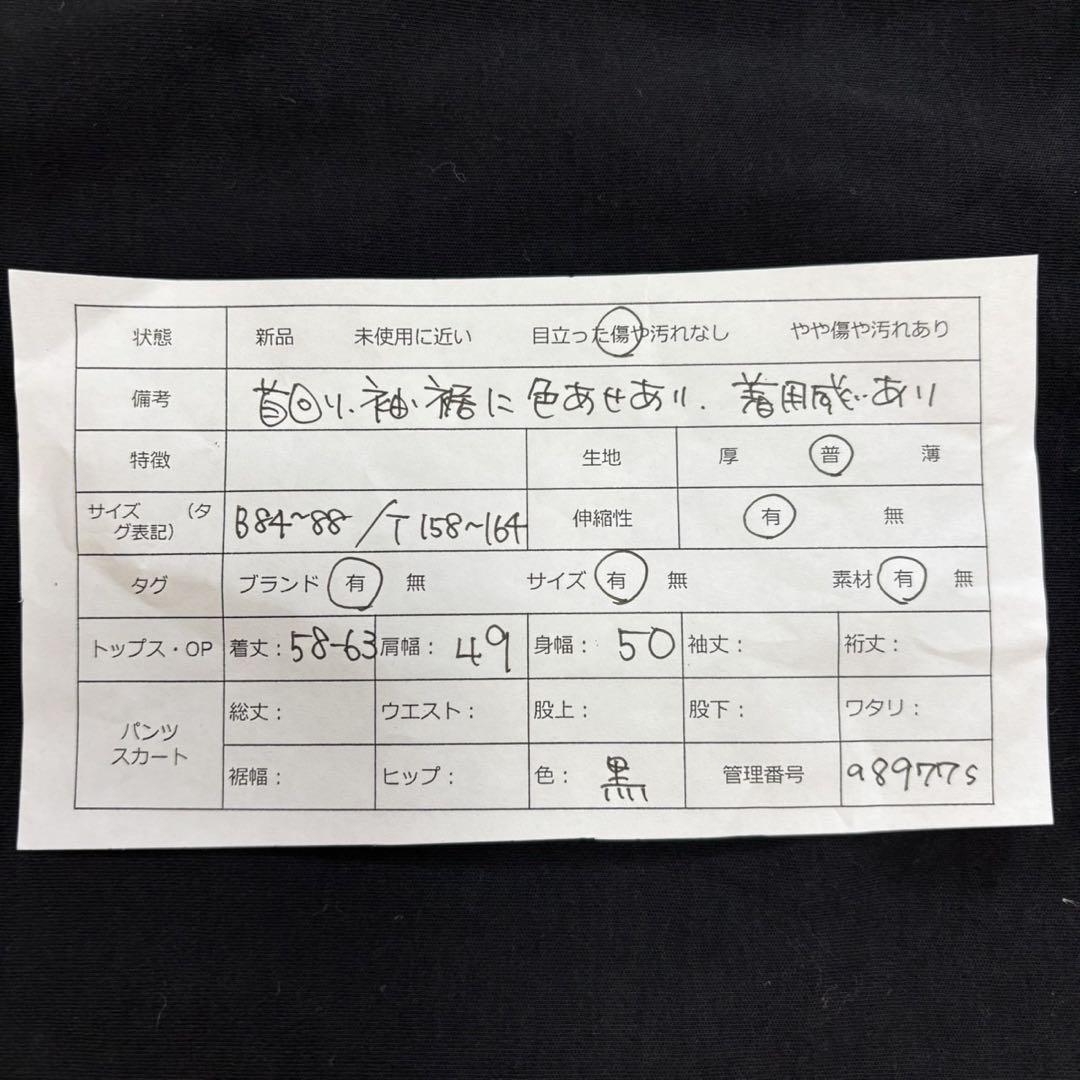 状態 新品 未使用に近い 目立った傷や汚れなし やや傷や汚れあり
備考 首回り、袖、裾に色あせあり、着用感あり
特徴 生地 厚 普 薄
サイズ （タ
グ表記） B84~88/T158~164 伸縮性 有 無
タグ ブランド 有 無 サイズ 有 無 素材 有 無
トップス・OP 着丈：58-63 肩幅：49 身幅：50 袖丈： 裄丈：
パンツ
スカート
総丈： ウエスト： 股上： 股下： ワタリ：
裾幅： ヒップ： 色：黒 管理番号 a8977s